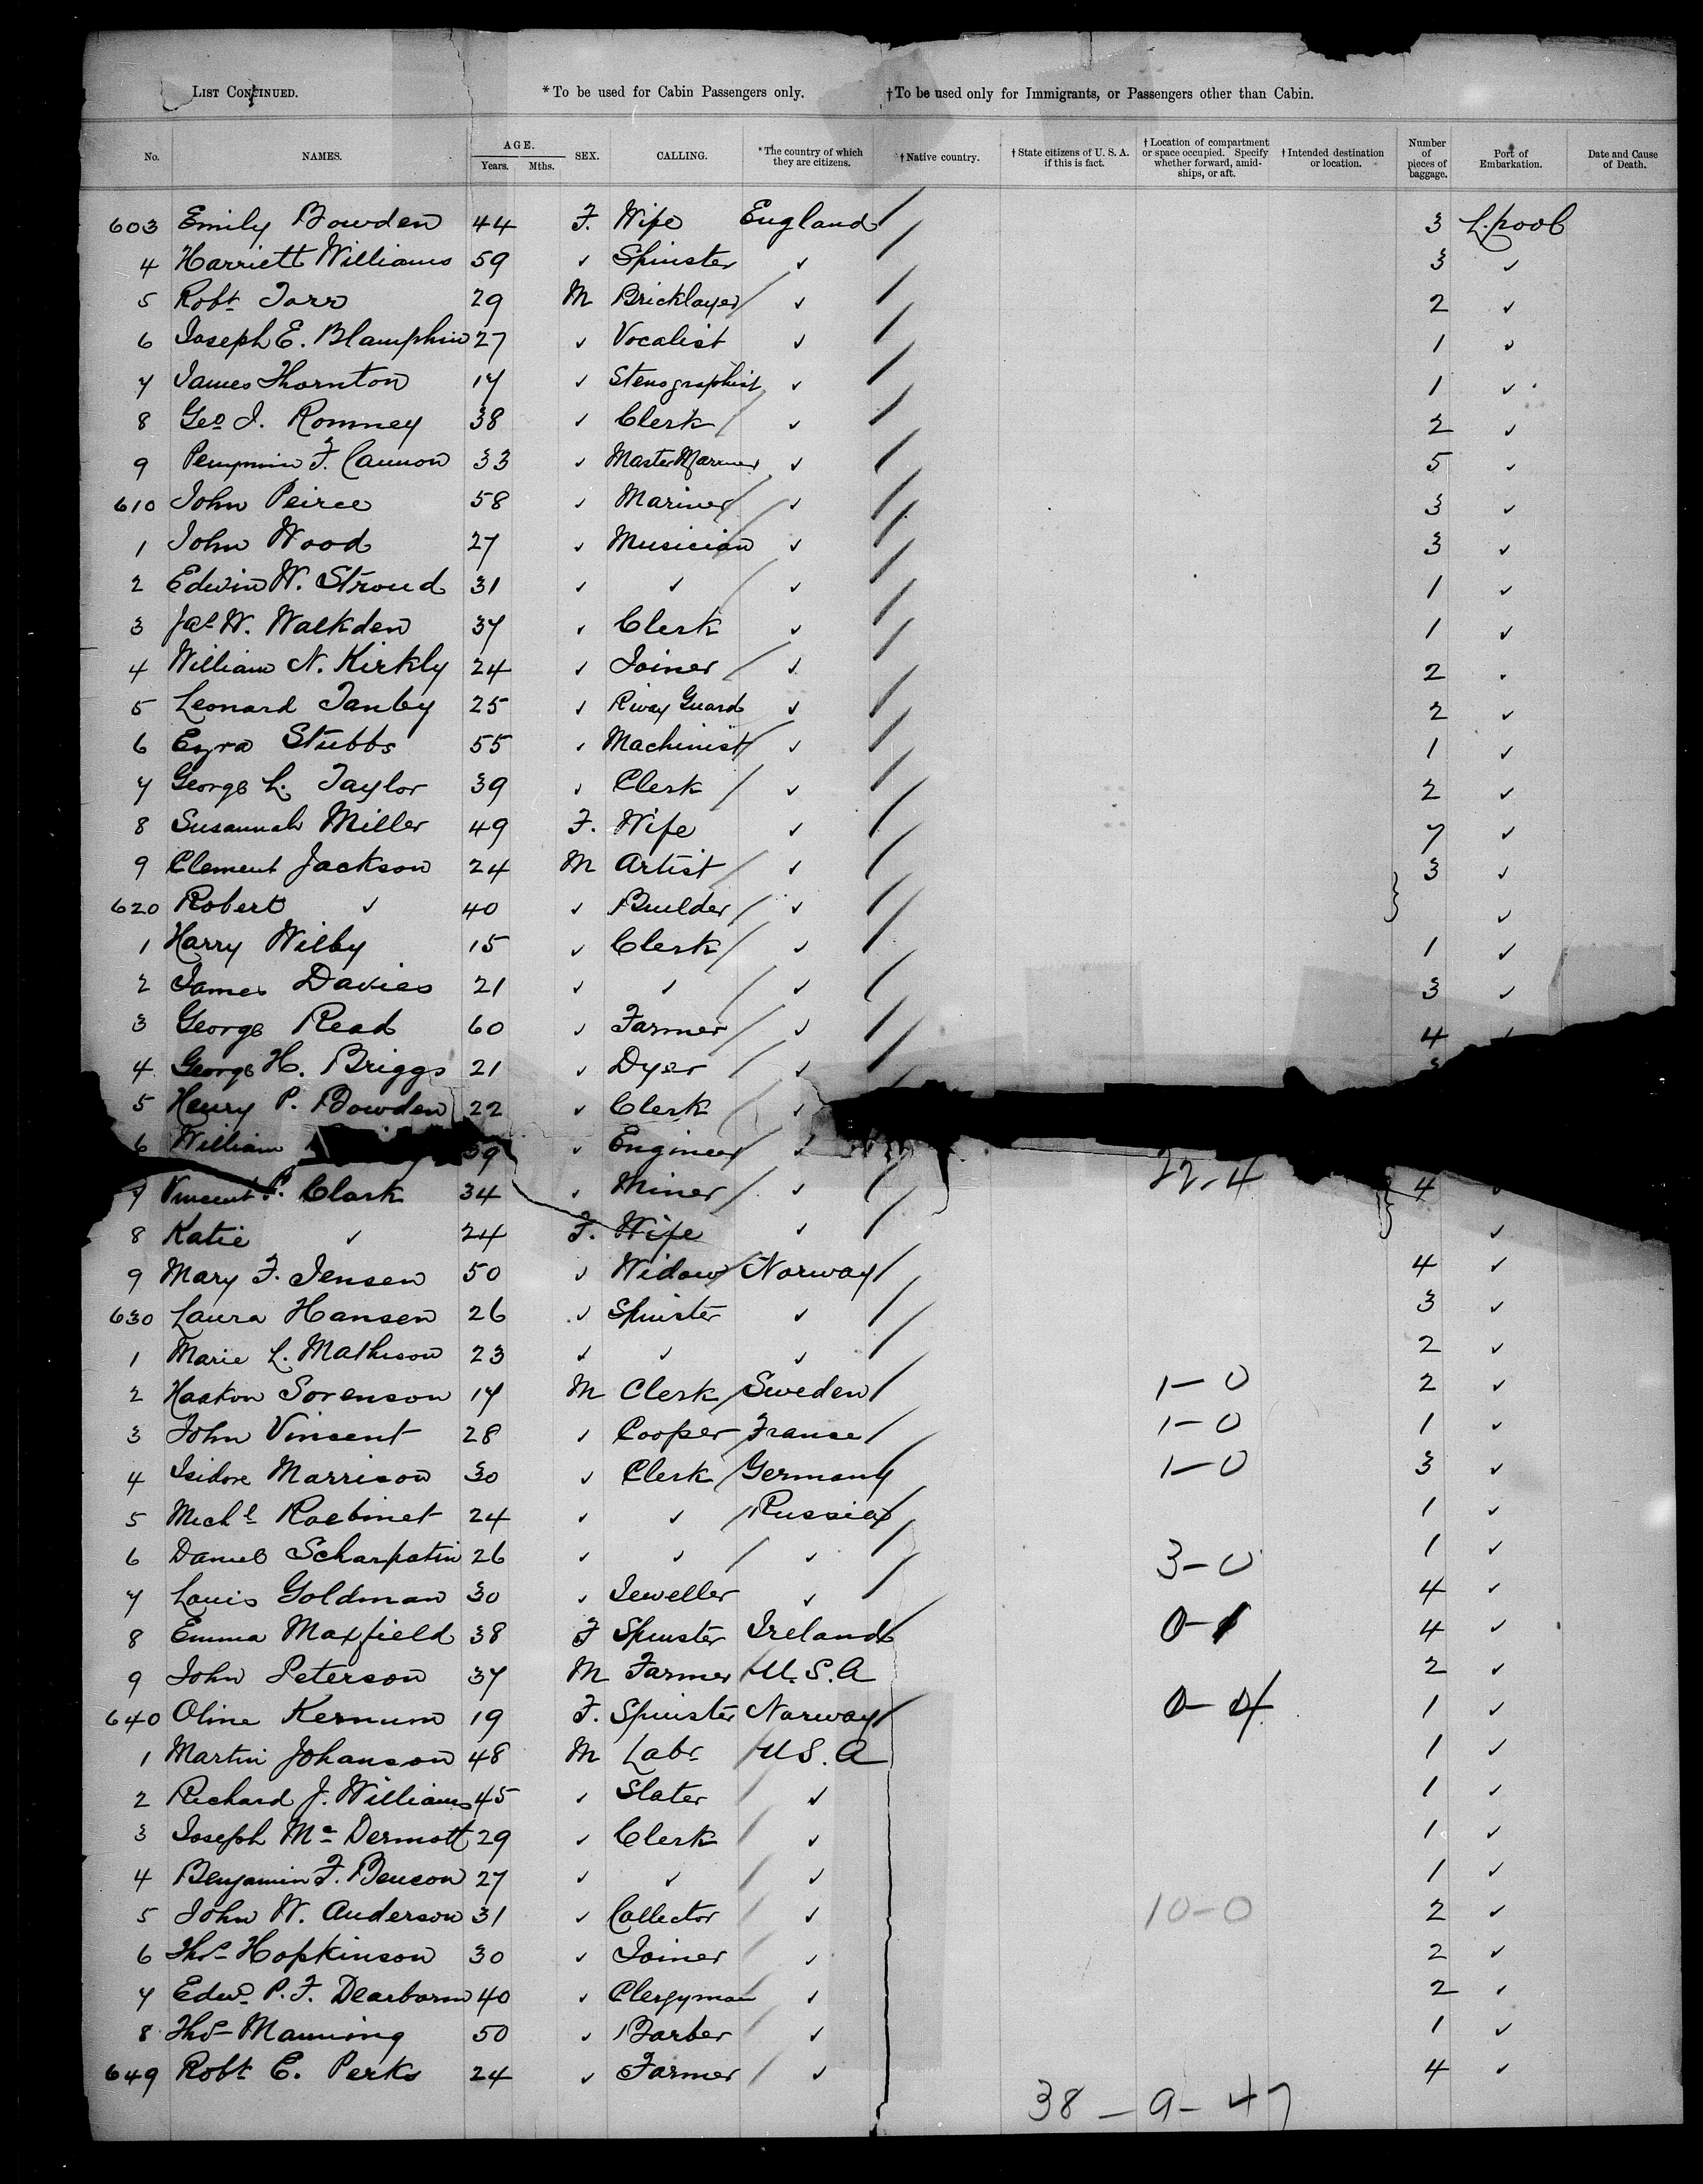 LIST CONTINUED. * To be used for Cabin Passengers only. † To be used only for Immigrants, or Passengers other than Cabin.
No. NAMES. AGE. Years. Mths. SEX. CALLING. * The country of which they are citizens. † Native country. † State citizens of U. S. A. if this is fact. † Location of compartment or space occupied. Specify whether forward, amidships, or aft. † Intended destination or location. Number of pieces of baggage. Port of Embarkation. Date and Cause of Death.
603 Emily Bowden 44 F. Wife England 3 L.pool
4 Harriett Williams 59 ✓ Spinster ✓ 3 ✓
5 Robt Tarr 29 M Bricklayer ✓ 2 ✓
6 Joseph E. Blamphin 27 ✓ Vocalist ✓ 1 ✓
7 James Thornton 17 ✓ Stenographist ✓ 1 ✓
8 Geo J. Romney 38 ✓ Clerk ✓ 2 ✓
9 F. Cannon 33 ✓ Master Mariner ✓ 5 ✓
610 John Peirce 58 ✓ Mariner ✓ 3 ✓
1 John Wood 27 ✓ Musician ✓ 3 ✓
2 Edwin W. Stroud 31 ✓ ✓ ✓ 1 ✓
3 Jas W. Walkden 37 ✓ Clerk ✓ 1 ✓
4 William N. Kirkly 24 ✓ Joiner ✓ 2 ✓
5 Leonard Tanby 25 ✓ Rway Guard ✓ 2 ✓
6 Ezra Stubbs 55 ✓ Machinist ✓ 1 ✓
7 George L. Taylor 39 ✓ Clerk ✓ 2 ✓
8 Susannah Miller 49 F. Wife ✓ 7 ✓
9 Clement Jackson 24 M Artist ✓ 3 ✓
620 Robert ✓ 40 ✓ Builder ✓ ✓
1 Harry Wilby 15 ✓ Clerk ✓ 1 ✓
2 James Davies 21 ✓ ✓ ✓ 3 ✓
3 George Read 60 ✓ Farmer ✓ 4 ✓
4 George H. Briggs 21 ✓ Dyer ✓
5 Henry P. Bowden 22 ✓ Clerk ✓
6 William 39 ✓ Engineer ✓ 22-4
7 Vincent P. Clark 34 ✓ Miner ✓ 4 ✓
8 Katie ✓ 24 F. Wife ✓ ✓
9 Mary F. Jensen 50 ✓ Widow Norway 4 ✓
630 Laura Hansen 26 ✓ Spinster ✓ 3 ✓
1 Marie L. Mathison 23 ✓ ✓ ✓ 2 ✓
2 Haakon Sorenson 17 M Clerk Sweden 1-0 2 ✓
3 John Vincent 28 ✓ Cooper France 1-0 1 ✓
4 Isidore Marrison 30 ✓ Clerk Germany 1-0 3 ✓
5 Michl Raebinet 24 ✓ ✓ Russia 1 ✓
6 Daniel Scharpatin 26 ✓ ✓ ✓ 3-0 1 ✓
7 Louis Goldman 30 ✓ Jeweller ✓ 4 ✓
8 Emma Maxfield 38 F Spinster Ireland 0-1 4 ✓
9 John Peterson 37 M Farmer U.S.A 2 ✓
640 Oline Kernum 19 F. Spinster Norway 0-4 1 ✓
1 Martin Johanson 48 M Labr U.S.A 1 ✓
2 Richard J. Williams 45 ✓ Slater ✓ 1 ✓
3 Joseph Mc Dermott 29 ✓ Clerk ✓ 1 ✓
4 Benjamin F. Benson 27 ✓ ✓ ✓ 1 ✓
5 John W. Anderson 31 ✓ Collector ✓ 10-0 2 ✓
6 Thos Hopkinson 30 ✓ Joiner ✓ 2 ✓
7 Edwd P. F. Dearborn 40 ✓ Clergyman ✓ 2 ✓
8 Thos Manning 50 ✓ Barber ✓ 1 ✓
649 Robt E. Perks 24 ✓ Farmer ✓ 4 ✓
38 - 9 - 47